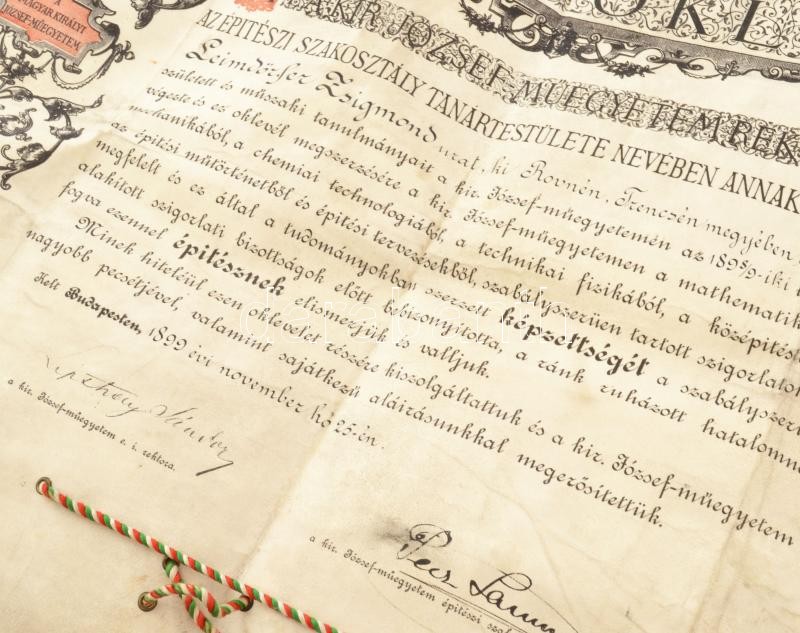 A
MAGYAR KIRÁLYI
JÓZSEF-MŰEGYETEM
OKL
A KIR. JÓZSEF-MŰEGYETEM REK
AZ ÉPITÉSZI SZAKOSZTÁLY TANÁRTESTÜLETE NEVÉBEN ANNAK
Leimdörfer Zsigmond urat, ki Rovnén, Trencsén megyében
született és műszaki tanulmányait a kir. József-műegyetemen az 1898/9-iki
végezte és ez oklevél megszerzésére a kir. József-műegyetemen a mathematik
mechanikából, a chemiai technologiából, a technikai fizikából, a középités
az épitési műtörténetből és épitési tervezésekből, szabályszerüen tartott szigorlatok
megfelelt és ez által a tudományokban szerzett képzettségét a szabályszerü
alakított szigorlati bizottságok előtt bebizonyította, a ránk ruházott hatalomn
fogva ezennel épitésznek elismerjük és valljuk.
Minek hiteléül ezen oklevelet részére kiszolgáltattuk és a kir. József-műegyetem
nagyobb pecsétjével, valamint sajátkezű aláírásunkkal megerősítettük.
Kelt Budapesten, 1899 évi november hó 25-én.
Sándor
a kir. József-műegyetem e. i. rektora.
Pecz Samu
a kir. József-műegyetem épitészi